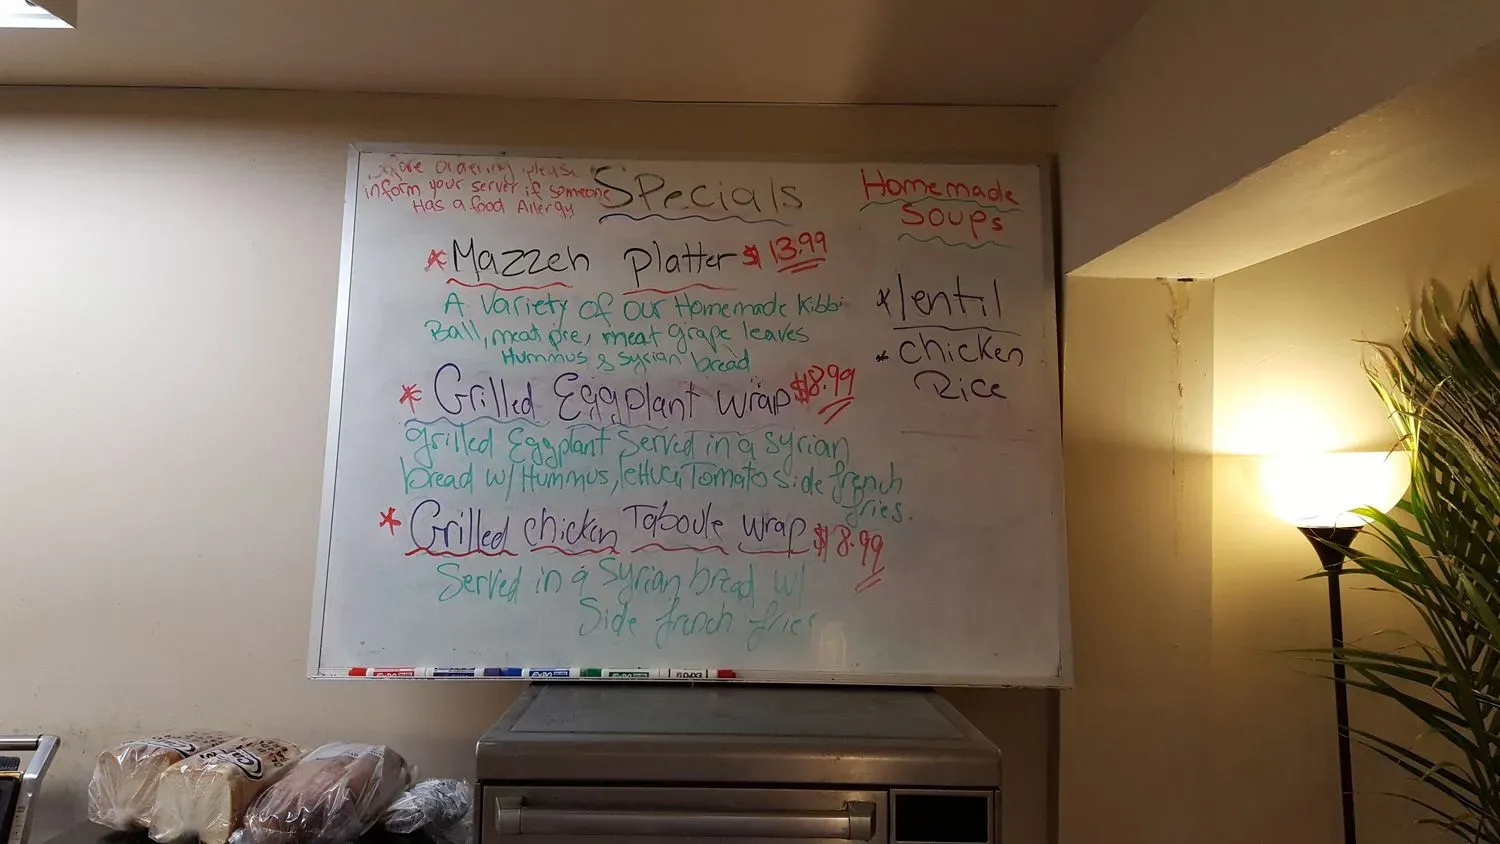 Before ordering please
inform your server if someone
Has a food Allergy
Specials
* Mazzeh Platter $13.99
A Variety of our Homemade Kibbi
Ball, meat pie, meat grape leaves
Hummus & Syrian bread
* Grilled Eggplant wrap $8.99
grilled Eggplant Served in a Syrian
bread w/ Hummus, lettuce, Tomato side french
fries.
* Grilled chicken Taboule wrap $8.99
Served in a Syrian bread w/
Side french fries
Homemade
Soups
* lentil
* chicken
Rice
EXPO